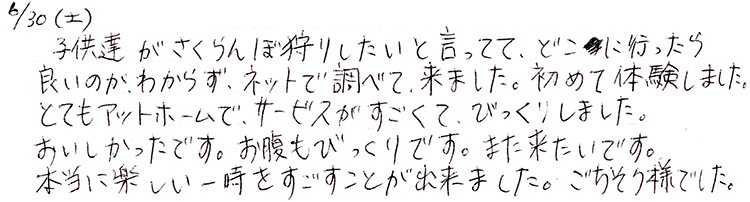 6/30(土)
子供達がさくらんぼ狩りしたいと言ってて、どこに行ったら
良いのか、わからず、ネットで調べて、来ました。初めて体験しました。
とてもアットホームで、サービスがすごくて、びっくりしました。
おいしかったです。お腹もびっくりです。また来たいです。
本当に楽しい一時をすごすことが出来ました。ごちそう様でした。